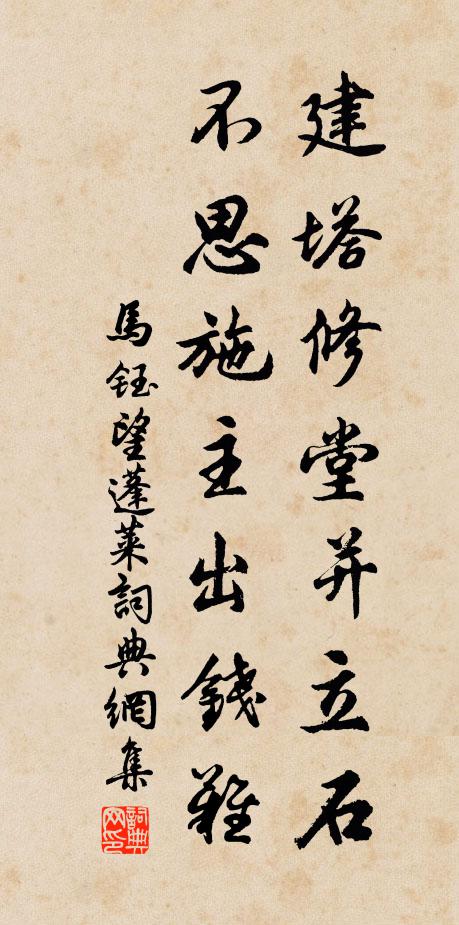 建塔修堂并立石
不思施主出錢難
馬鈺望蓬萊詞典網集
詞典网印